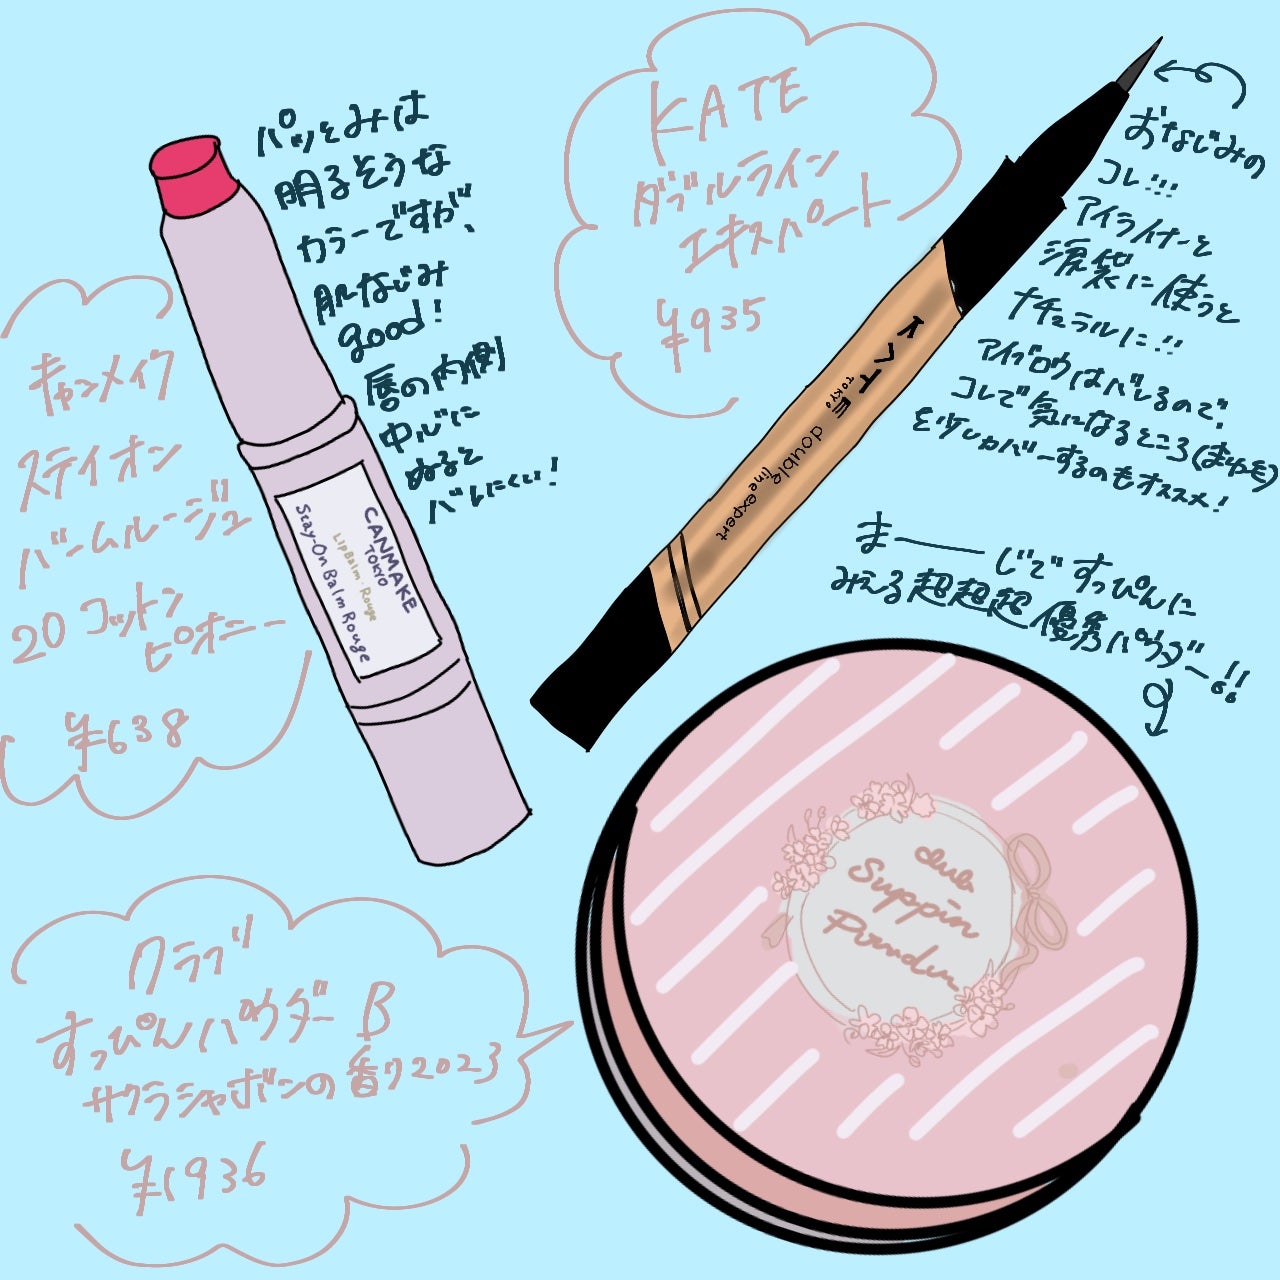 パッとみは
明るそうな
カラーですが、
肌なじみ
good!
唇の内側
中心に
ぬると
バレにくい!
キャンメイク
ステイオン
バームルージュ
20 コットン
ピオニー
¥638
CANMAKE
TOKYO
Lip Balm・Rouge
Stay-On Balm Rouge
KATE
ダブルライン
エキスパート
¥935
KATE
TOKYO
double
line expert
おなじみの
コレ!!!
アイライナーと
涙袋に使うと
ナチュラルに!!
アイブロウはバレるので、
コレで気になるところ(まゆ毛)
を少しカバーするのもオススメ!
まーーじですっぴんに
みえる超超超優秀パウダー!!
club
Suppin
Powder
クラブ
すっぴんパウダー B
サクラシャボンの香り2023
¥1936